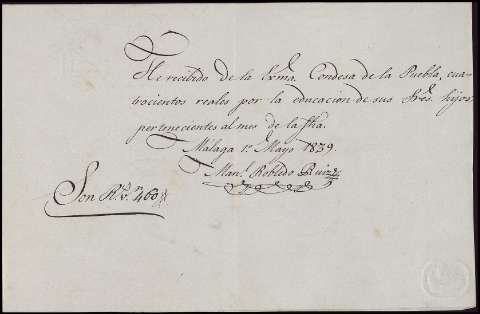 He recibido de la Exma. Condesa de la Puebla, cua-
trocientos reales por la educacion de sus Sres. hijos
pertenecientes al mes de la fha.
Málaga 1º Mayo 1839.
Manl. Robledo Ruiz
Son Rs. vn. 400